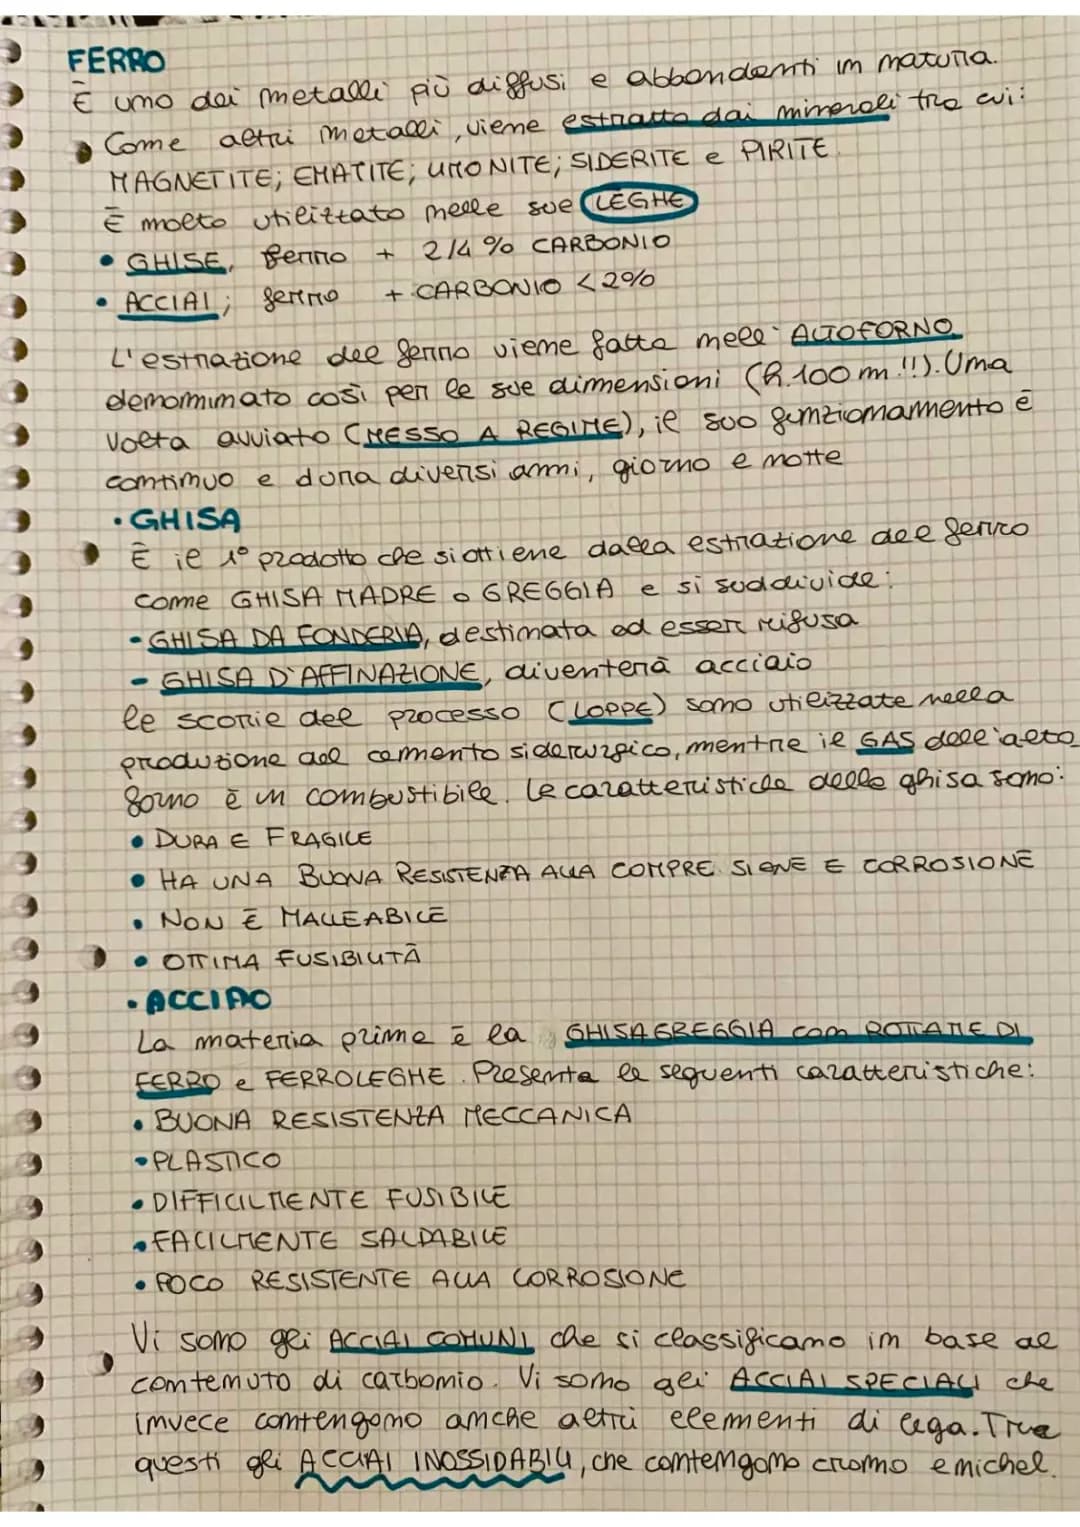 FERRO
È uno dei metalli più diffusi e abbondanti in natura.
Come altri metalli, viene estratto dai minerali tra cui:
MAGNETITE; EMATITE; LIMONITE; SIDERITE e PIRITE.
È molto utilizzato nelle sue LEGHE
• GHISE, ferro + 2/4% CARBONIO
• ACCIAI; ferro + CARBONIO <2%
L'estrazione del ferro viene fatta nell'ALTOFORNO
denominato così per le sue dimensioni (h.100 m.!!). Una
volta avviato (MESSO A REGIME), il suo funzionamento è
continuo e dura diversi anni, giorno e notte
• GHISA
È il 1° prodotto che si ottiene dalla estrazione del ferro
come GHISA MADRE o GREGGIA e si suddivide:
- GHISA DA FONDERIA, destinata ad esser rifusa
- GHISA D'AFFINAZIONE, diventerà acciaio
le scorie del processo (LOPPE) sono utilizzate nella
produzione del cemento siderurgico, mentre il GAS dell'alto
forno è un combustibile. Le caratteristiche della ghisa sono:
• DURA E FRAGILE
• HA UNA BUONA RESISTENZA ALLA COMPRE SIONE E CORROSIONE
• NON È MALLEABILE
• OTTIMA FUSIBILITÀ
• ACCIAO
La materia prima è la GHISA GREGGIA con ROTTAME DI
FERRO e FERROLEGHE. Presenta le seguenti caratteristiche:
• BUONA RESISTENZA MECCANICA
• PLASTICO
• DIFFICILMENTE FUSIBILE
• FACILMENTE SALDABILE
• POCO RESISTENTE ALLA CORROSIONE
Vi sono gli ACCIAI COMUNI che si classificano in base al
contenuto di carbonio. Vi sono gli ACCIAI SPECIALI che
invece contengono anche altri elementi di lega. Tra
questi gli ACCIAI INOSSIDABILI, che contengono cromo e nichel.